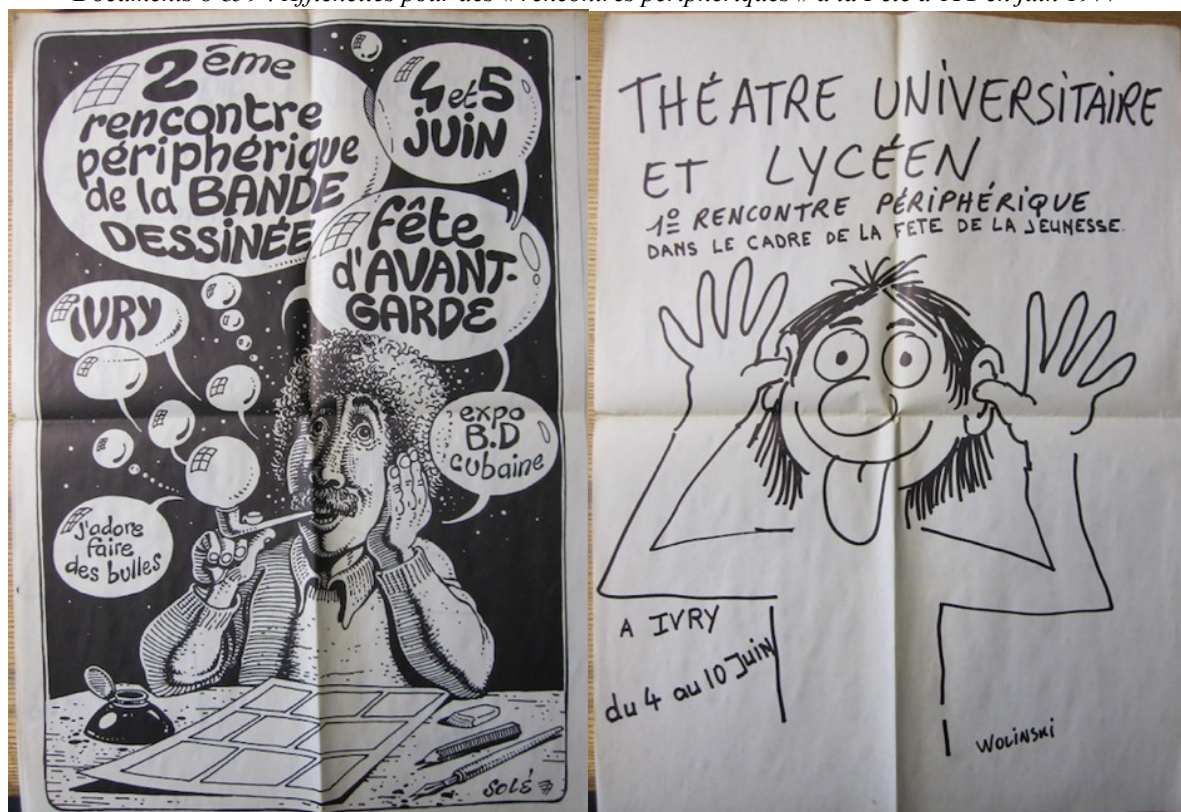 2ème
rencontre
périphérique
de la BANDE
DESSINÉE
4 et 5
JUIN
fête
d'AVANT-
GARDE
IVRY
expo
B.D
cubaine
J'adore
faire
des bulles
SOLÉ
THÉATRE UNIVERSITAIRE
ET LYCÉEN
1º RENCONTRE PÉRIPHÉRIQUE
DANS LE CADRE DE LA FETE DE LA JEUNESSE.
A IVRY
du 4 au 10 Juin
WOLINSKI